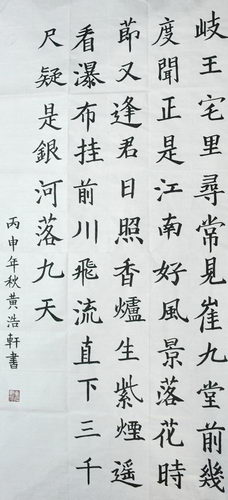 歧王宅里尋常見崔九堂前幾
度聞正是江南好風景落花時
節又逢君日照香爐生紫煙遥
看瀑布挂前川飛流直下三千
尺疑是銀河落九天
丙申年秋黄浩軒書